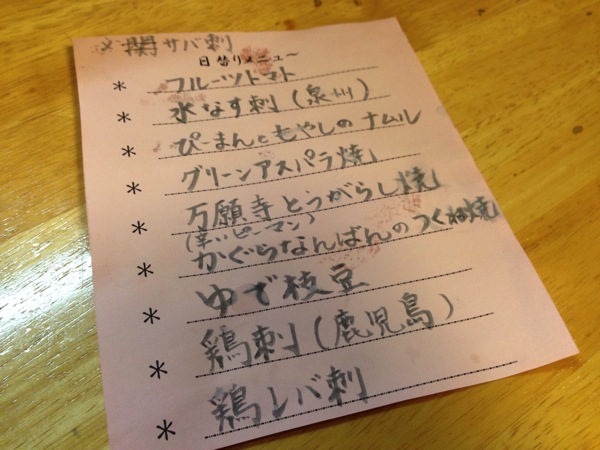 ※関サバ刺
日替りメニュ～
* フルーツトマト
* 水なす刺（泉州）
* ぴーまんともやしのナムル
* グリーンアスパラ焼
* 万願寺とうがらし焼
(辛いピーマン)
* かぐらなんばんのつくね焼
* ゆで枝豆
* 鶏刺（鹿児島）
* 鶏レバ刺